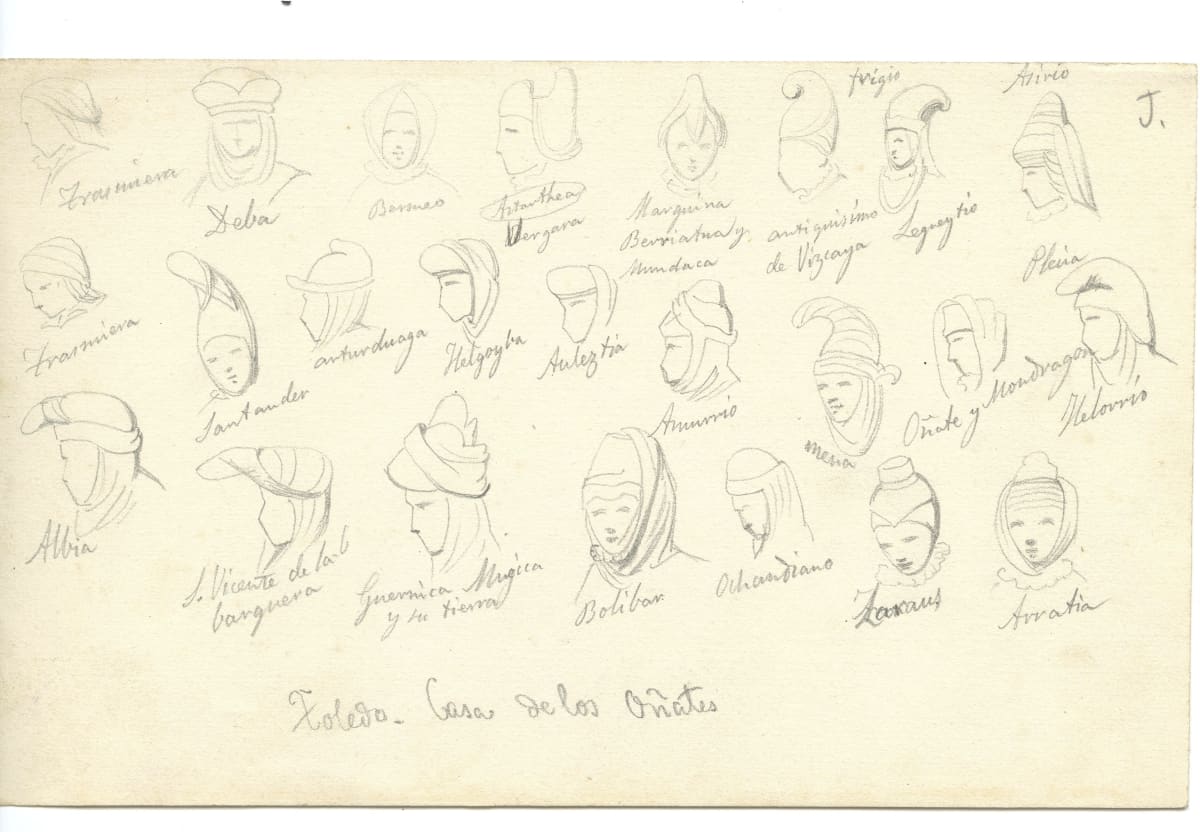 frigio
Asirio
J.
Trasmiera
Deba
Bermeo
Astarthea
Vergara
Marquina
Berriatua y
Mundaca
antiquisimo
de Vizcaya
Lequeytio
Plencia
Trasmiera
Santander
arturduaga
Helgoyba
Auleztia
Amurrio
mena
Oñate y Mondragon
Helorrio
Albia
S. Vicente de la b
barquera
Guernica Mugica
y su tierra
Bolibar
Ochandiano
Zaraus
Arratia
Toledo - Casa de los Oñates